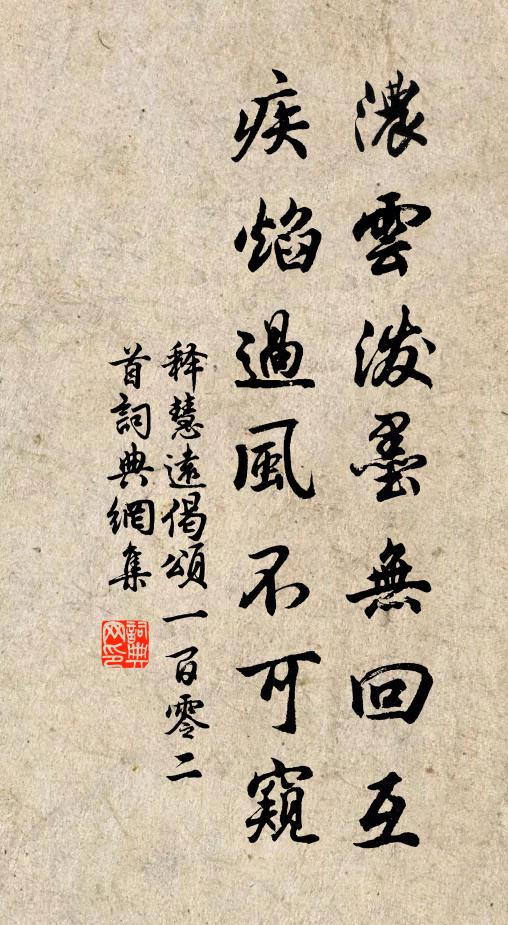 濃雲潑墨無回互
疾焰過風不可窺
釋慧遠偈頌一百零二
首詞典網集
詞典
网印